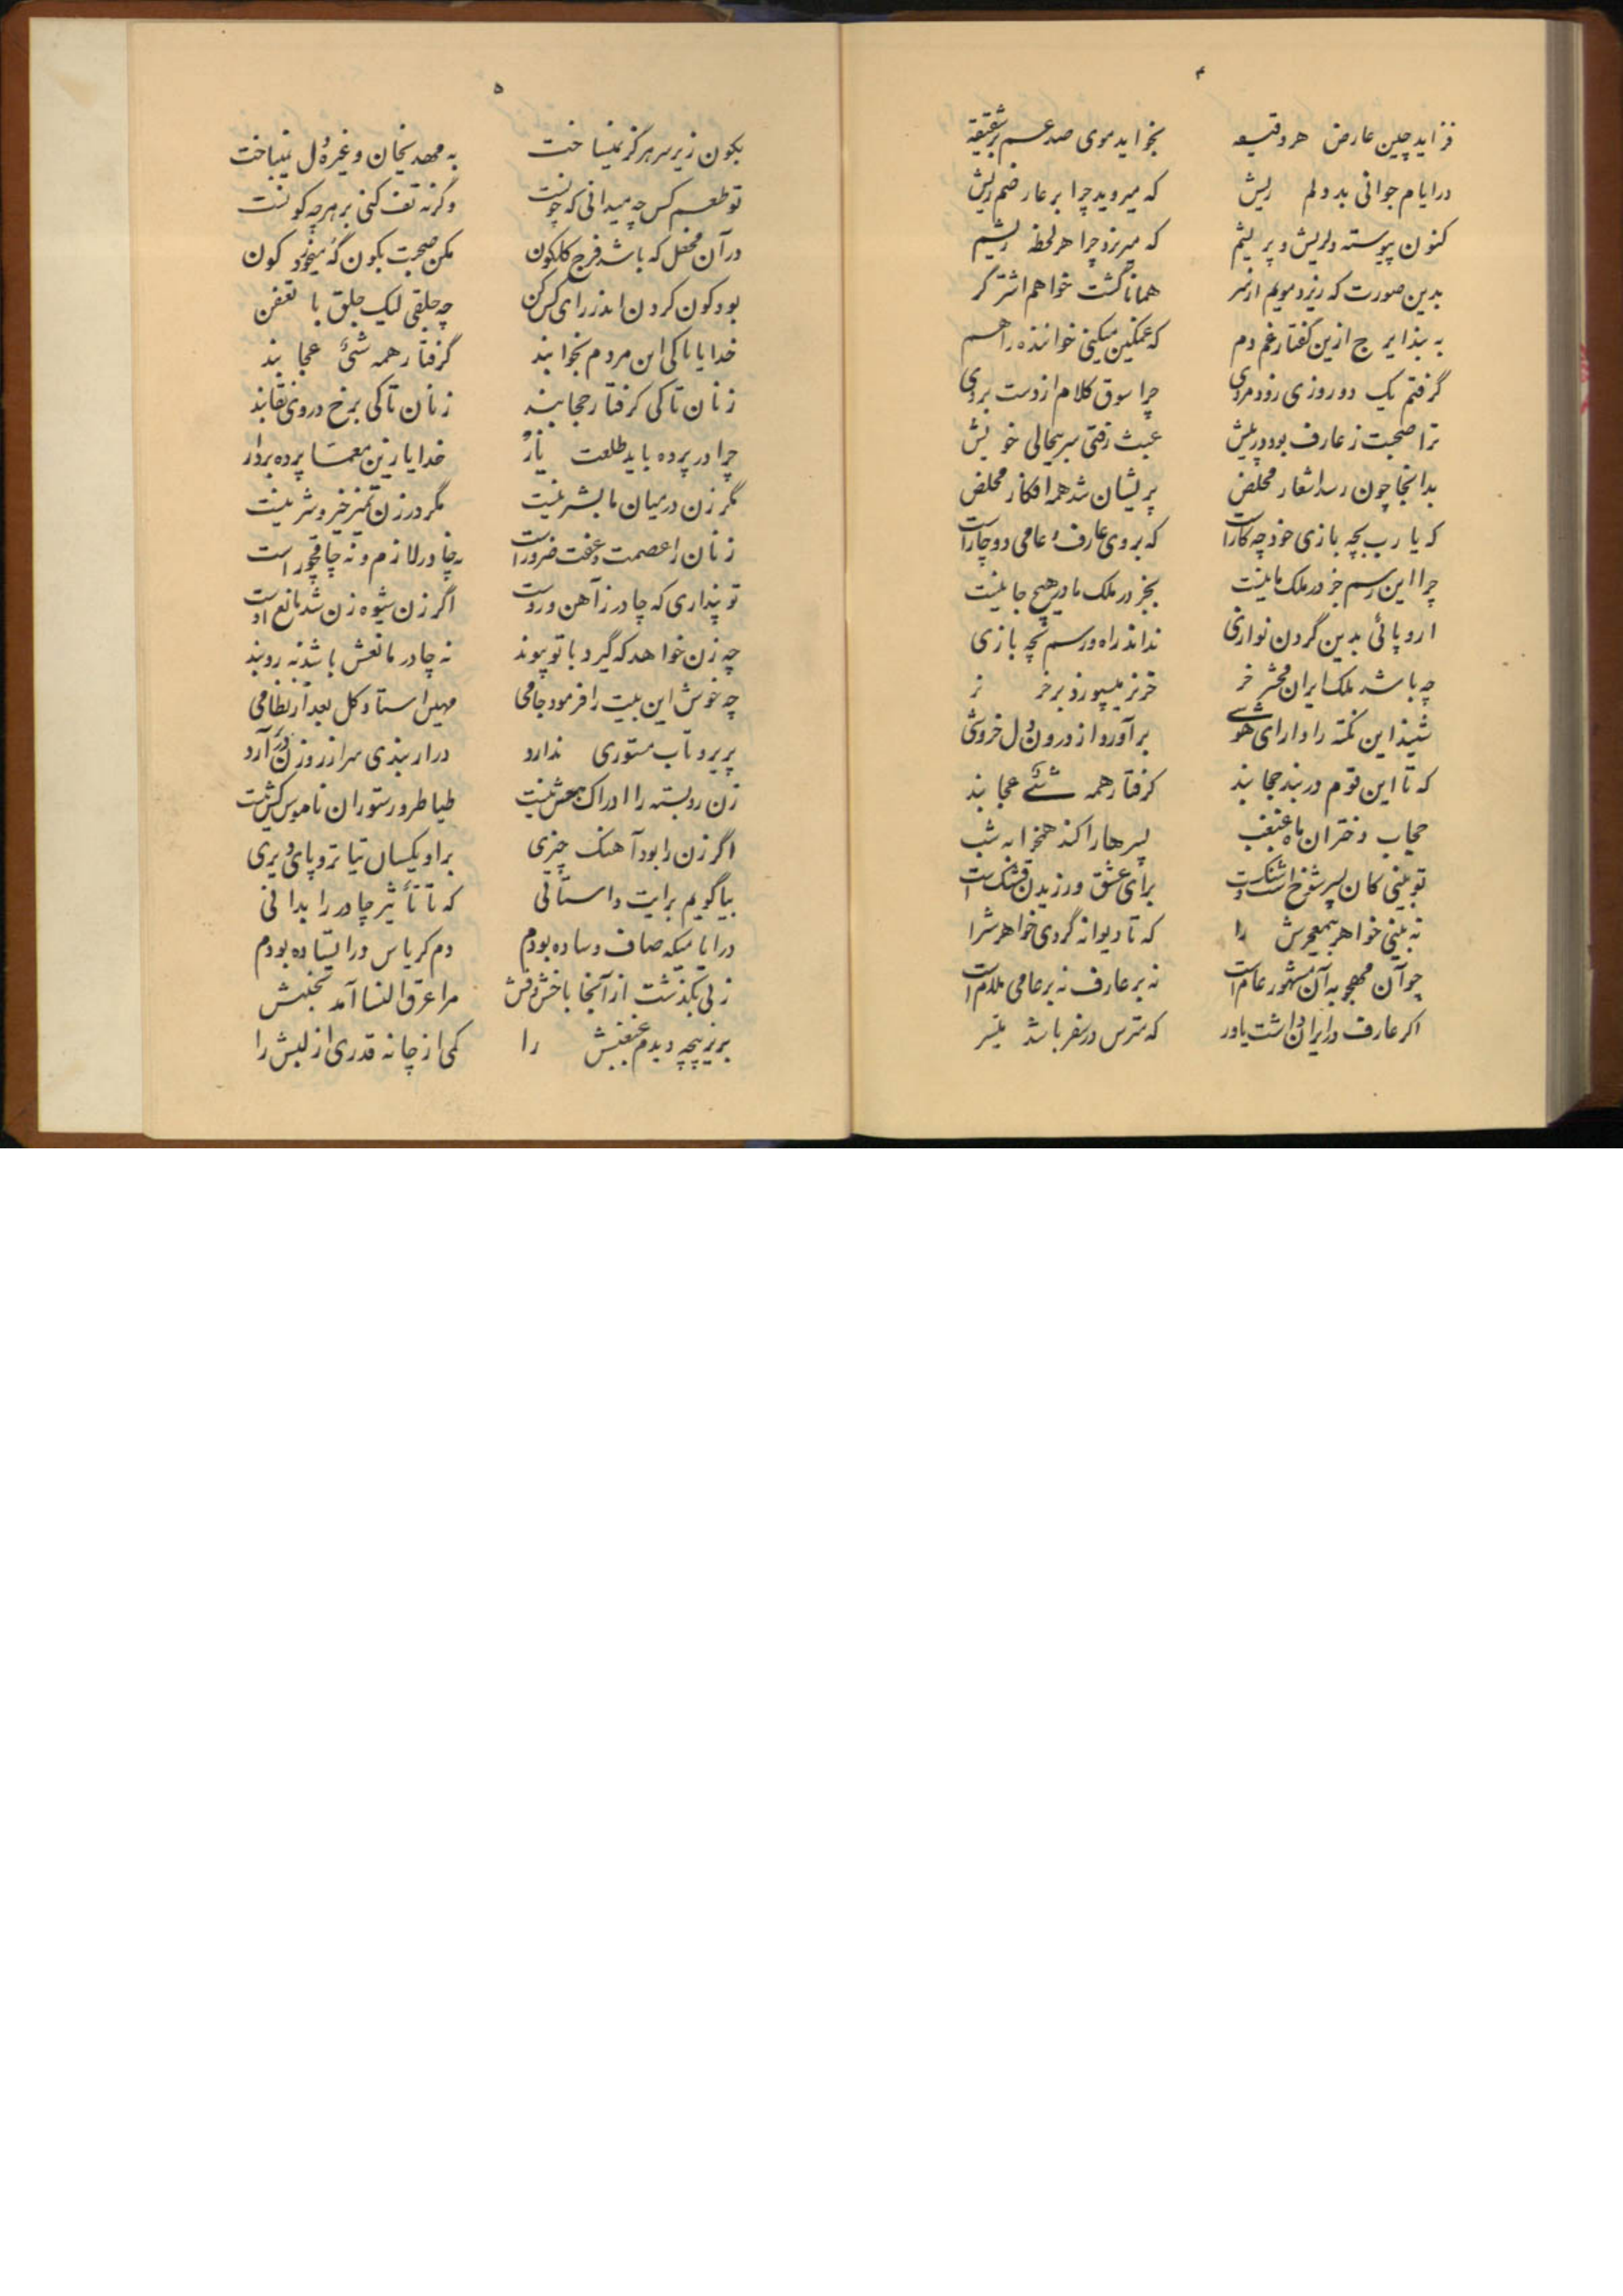 ۴
فزاید چین عارض هر دقیقه بخوابد موی صدغم بر شقیقه
در ایام جوانی بد دلم ریش که میروید چرا بر عارضم ریش
کنون پیوسته دلریش و پریشم که میریزد چرا هر لحظه ریشم
بدین صورت که ریزد مویم از سر همانا گشت خواهم اشتر گر
به بند ایرج ازین گفتار غم دم که غمگین میکنی خواننده را هم
گرفتم یک دو روزی زود مردی چرا سوق کلام از دست بردی
ترا صحبت ز عارف بود در پیش عبث رفتی سر بیحالی خویش
بدانجا چون رسد اشعار مخلص پریشان شد همه افکار مخلص
که یا رب بچه بازی خود چه کار است که بر وی عارف و عامی دوچار است
چرا این رسم جز در ملک ما نیست بجز در ملک ما در هیچ جا نیست
اروپائی بدین گردن فرازی نداند راه و رسم بچه بازی
چه باشد ملک ایران محشر خر خر نر میسپوزد بر خر نر
شنید این نکته را دارای هوشی برآورد از درون دل خروشی
که تا این قوم در بند حجابند گرفتار همه شئی عجابند
حجاب دختران ماه غبغب پسرها را کند همخوابه شب
تو بینی کان پسر شوخ است و شنگ است برای عشق ورزیدن قشنگ است
نه بینی خواهر بیمعجرش را که تا دیوانه گردی خواهرش را
چو آن محجوبه آن مشهور عام است نه بر عارف نه بر عامی ملام است
اگر عارف در ایران داشت باور که مترس در سفر باشد میسر
۵
بکون زیر سر هرگز نمیساخت به مهد نخان و غیره دل نمیباخت
تو طعم کس چه میدانی که چونست وگرنه تف کنی بر هر چه کونست
در آن محفل که باشد فرج گلگون مکن صحبت بکون گه میخورد کون
بود کون کردن اندر رای کس کن چه جلقی لیک جلق با تعفن
خدایا تا کی این مردم بخوابند گرفتار همه شئ عجابند
زنان تا کی گرفتار حجابند زنان تا کی برخ در وی نقابند
چرا در پرده باید طلعت یار خدایا زین معما پرده بردار
مگر زن در میان ما بشر نیست مگر در زن تمیز خیر و شر نیست
زنان را عصمت و عفت ضرور است نه چادر لازم و نه چاقچور است
تو پنداری که چادر ز آهن و روست اگر زن شیوه زن شد مانع اوست
چه زن خواهد که گیرد با تو پیوند نه چادر مانعش باشد نه روبند
چه خوش این بیت را فرمود جامی مهین استاد کل بعد از نظامی
پریرو تاب مستوری ندارد در ار بندی سر از روزن در آرد
زن روبسته را ادراک هش نیست طیاطر و رستوران ناموس کش نیست
اگر زن را بود آهنک چیزی بر او یکسان تیاتر و پای دیزی
بیا گویم برایت داستانی که تا تأثیر چادر را بدانی
در ایامیکه صاف و ساده بودم دم کریاس در ایستاده بودم
زنی بگذشت از آنجا با خش و فش مرا عرق النسا آمد بجنبش
بزیر پیچه دیدم غبغبش را کمی از چانه قدری از لبش را